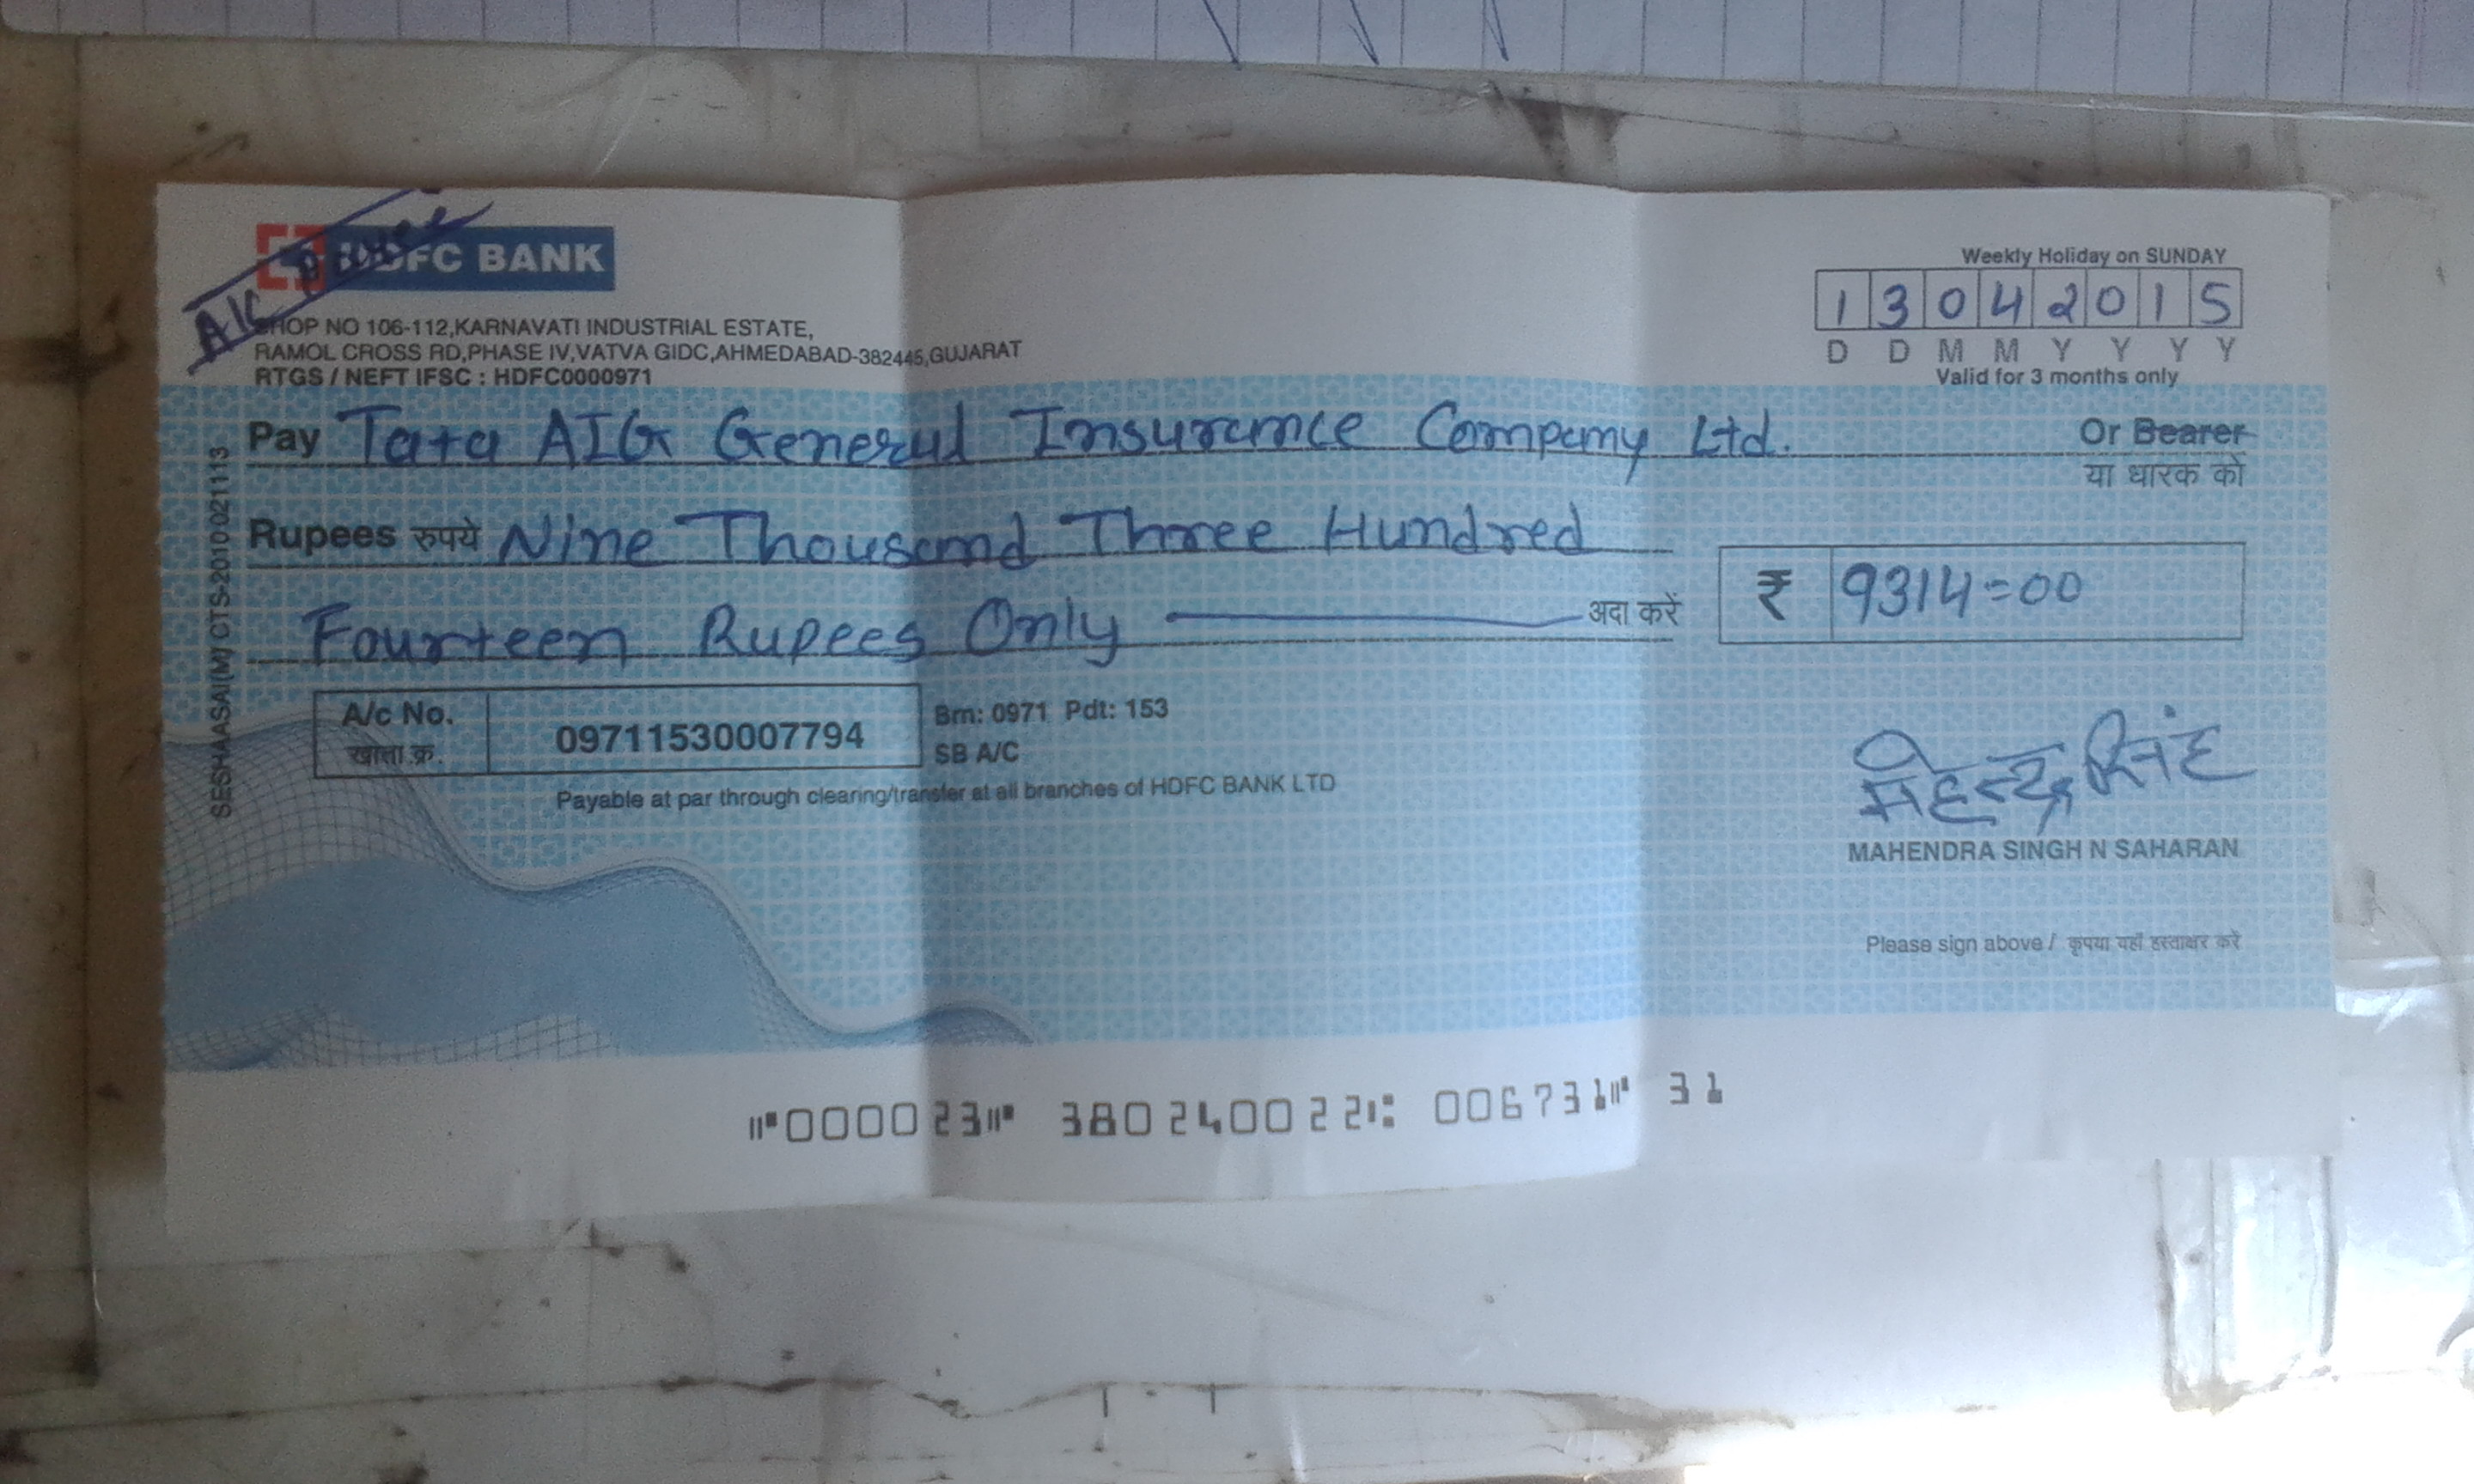 A/C Payee
HDFC BANK
SHOP NO 106-112,KARNAVATI INDUSTRIAL ESTATE,
RAMOL CROSS RD,PHASE IV,VATVA GIDC,AHMEDABAD-382445,GUJARAT
RTGS / NEFT IFSC : HDFC0000971
Weekly Holiday on SUNDAY
1 3 0 4 2 0 1 5
D D M M Y Y Y Y
Valid for 3 months only
Pay Tata AIG General Insurance Company Ltd. Or Bearer
या धारक को
Rupees रुपये Nine Thousand Three Hundred
Fourteen Rupees Only अदा करें
₹ 9314=00
A/c No. 09711530007794
खाता क्र.
Brn: 0971 Pdt: 153
SB A/C
Payable at par through clearing/transfer at all branches of HDFC BANK LTD
महेन्द्र सिंह
MAHENDRA SINGH N SAHARAN
Please sign above / कृपया यहाँ हस्ताक्षर करे
SESHAASAI(M)/ CTS-2010 021113
⑈000023⑈ 380240022⑆ 006731⑈ 31